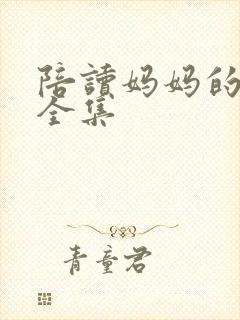 陪讀妈妈的
全集
青童君